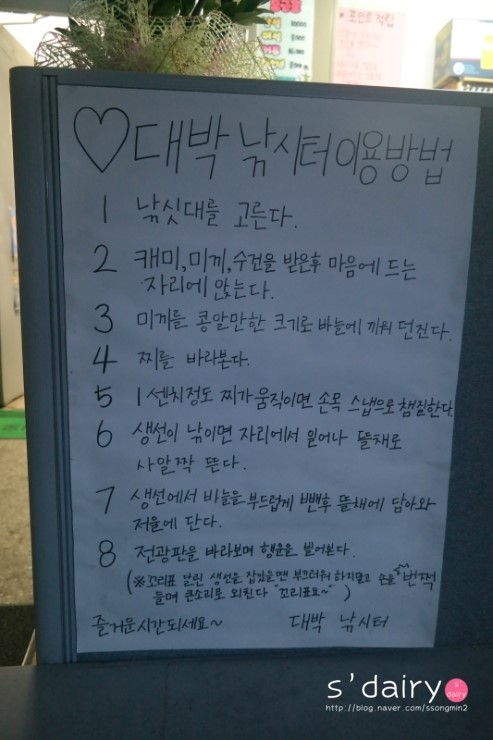 포인트 적립
♡대박 낚시터 이용방법
1 낚싯대를 고른다.
2 캐미,미끼,수건을 받은후 마음에 드는
자리에 앉는다.
3 미끼를 콩알만한 크기로 바늘에 끼워 던진다.
4 찌를 바라본다.
5 1센치정도 찌가 움직이면 손목 스냅으로 챔질한다
6 생선이 낚이면 자리에서 일어나 뜰채로
사알짝 뜬다.
7 생선에서 바늘을 부드럽게 뺀후 뜰채에 담아와
저울에 단다.
8 전광판을 바라보며 행운을 빌어본다.
(※꼬리표 달린 생선을 잡았을땐 부끄러워 하지말고 손을 번쩍
들며 큰소리로 외친다 "꼬리표요~")
즐거운시간되세요~ 대박 낚시터
s'dairy
s' dairy
http://blog.naver.com/ssongmin2